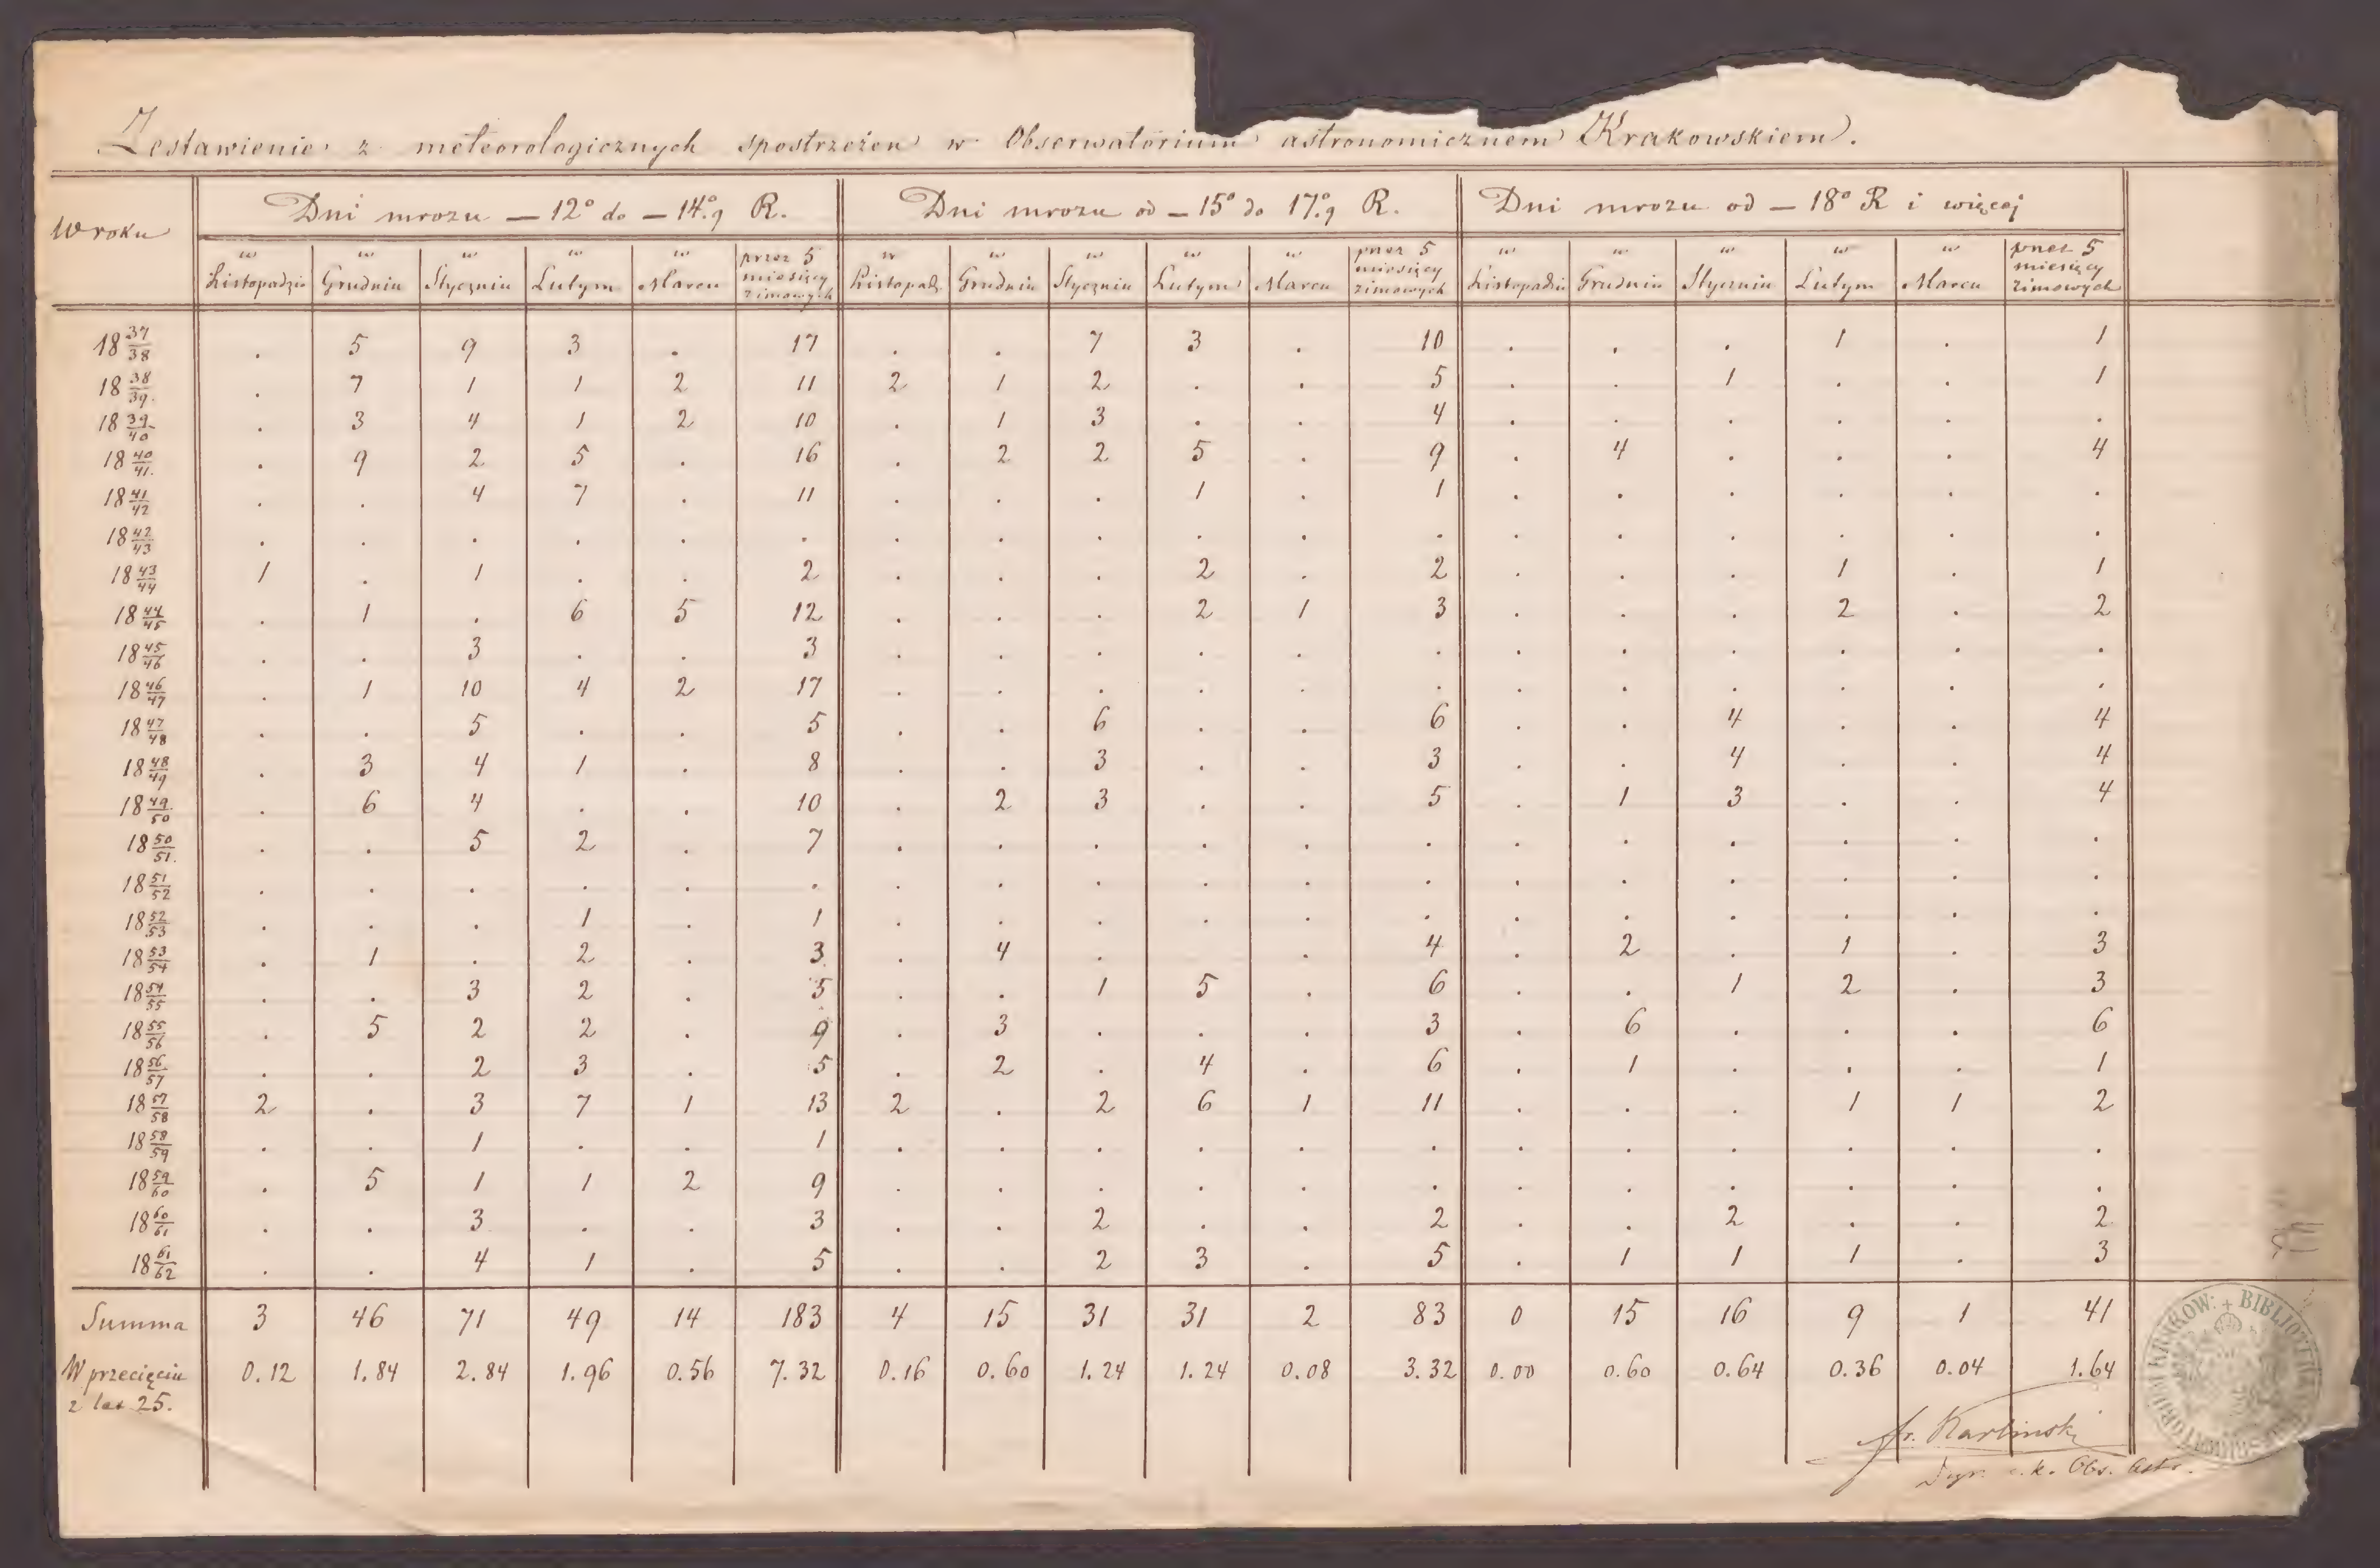 Zestawienie z meteorologicznych spostrzeżeń w Obserwatorium astronomicznem Krakowskiem.
W roku | Dni mrozu — 12° do — 14°.9 R. | Dni mrozu od — 15° do 17°.9 R. | Dni mrozu od — 18° R i więcej
w Listopadzie | w Grudniu | w Styczniu | w Lutym | w Marcu | przez 5 miesięcy zimowych | w Listopadz. | w Grudniu | w Styczniu | w Lutym | w Marcu | przez 5 miesięcy zimowych | w Listopadzie | w Grudniu | w Styczniu | w Lutym | w Marcu | przez 5 miesięcy zimowych
18 37/38 . 5 9 3 . 17 . . 7 3 . 10 . . . 1 . 1
18 38/39. . 7 1 1 2 11 2 1 2 . . 5 . . 1 . . 1
18 39/40 . 3 4 1 2 10 . 1 3 . . 4 . . . . . .
18 40/41. . 9 2 5 . 16 . 2 2 5 . 9 . 4 . . . 4
18 41/42 . . 4 7 . 11 . . . 1 . 1 . . . . . .
18 42/43 . . . . . . . . . . . . . . . . . .
18 43/44 1 . 1 . . 2 . . . 2 . 2 . . . 1 . 1
18 44/45 . 1 . 6 5 12 . . . 2 1 3 . . . 2 . 2
18 45/46 . . 3 . . 3 . . . . . . . . . . . .
18 46/47 . 1 10 4 2 17 . . . . . . . . . . . .
18 47/48 . . 5 . . 5 . . 6 . . 6 . . 4 . . 4
18 48/49 . 3 4 1 . 8 . . 3 . . 3 . . 4 . . 4
18 49/50 . 6 4 . . 10 . 2 3 . . 5 . 1 3 . . 4
18 50/51. . . 5 2 . 7 . . . . . . . . . . . .
18 51/52 . . . . . . . . . . . . . . . . . .
18 52/53 . . . 1 . 1 . . . . . . . . . . . .
18 53/54 . 1 . 2 . 3 . 4 . . . 4 . 2 . 1 . 3
18 54/55 . . 3 2 . 5 . . 1 5 . 6 . . 1 2 . 3
18 55/56 . 5 2 2 . 9 . 3 . . . 3 . 6 . . . 6
18 56/57 . . 2 3 . 5 . 2 . 4 . 6 . 1 . . . 1
18 57/58 2 . 3 7 1 13 2 . 2 6 1 11 . . . 1 1 2
18 58/59 . . 1 . . 1 . . . . . . . . . . . .
18 59/60 . 5 1 1 2 9 . . . . . . . . . . . .
18 60/61 . . 3 . . 3 . . 2 . . 2 . . 2 . . 2
18 61/62 . . 4 1 . 5 . . 2 3 . 5 . 1 1 1 . 3
Summa 3 46 71 49 14 183 4 15 31 31 2 83 0 15 16 9 1 41
W przecięciu z lat 25. 0.12 1.84 2.84 1.96 0.56 7.32 0.16 0.60 1.24 1.24 0.08 3.32 0.00 0.60 0.64 0.36 0.04 1.64
Fr. Karlinski
Dyr. c.k. Obs. Astr.